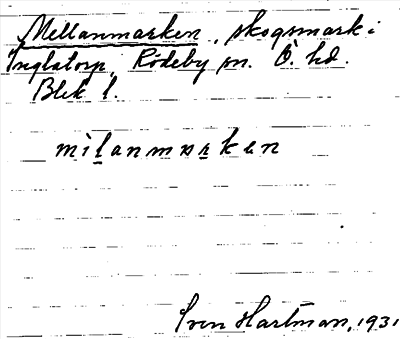 Mellanmarken, skogsmark i
Inglatorp, Rödeby sn. Ö. hd.
Blek l.
milanmarken
Sven Hartman, 1931